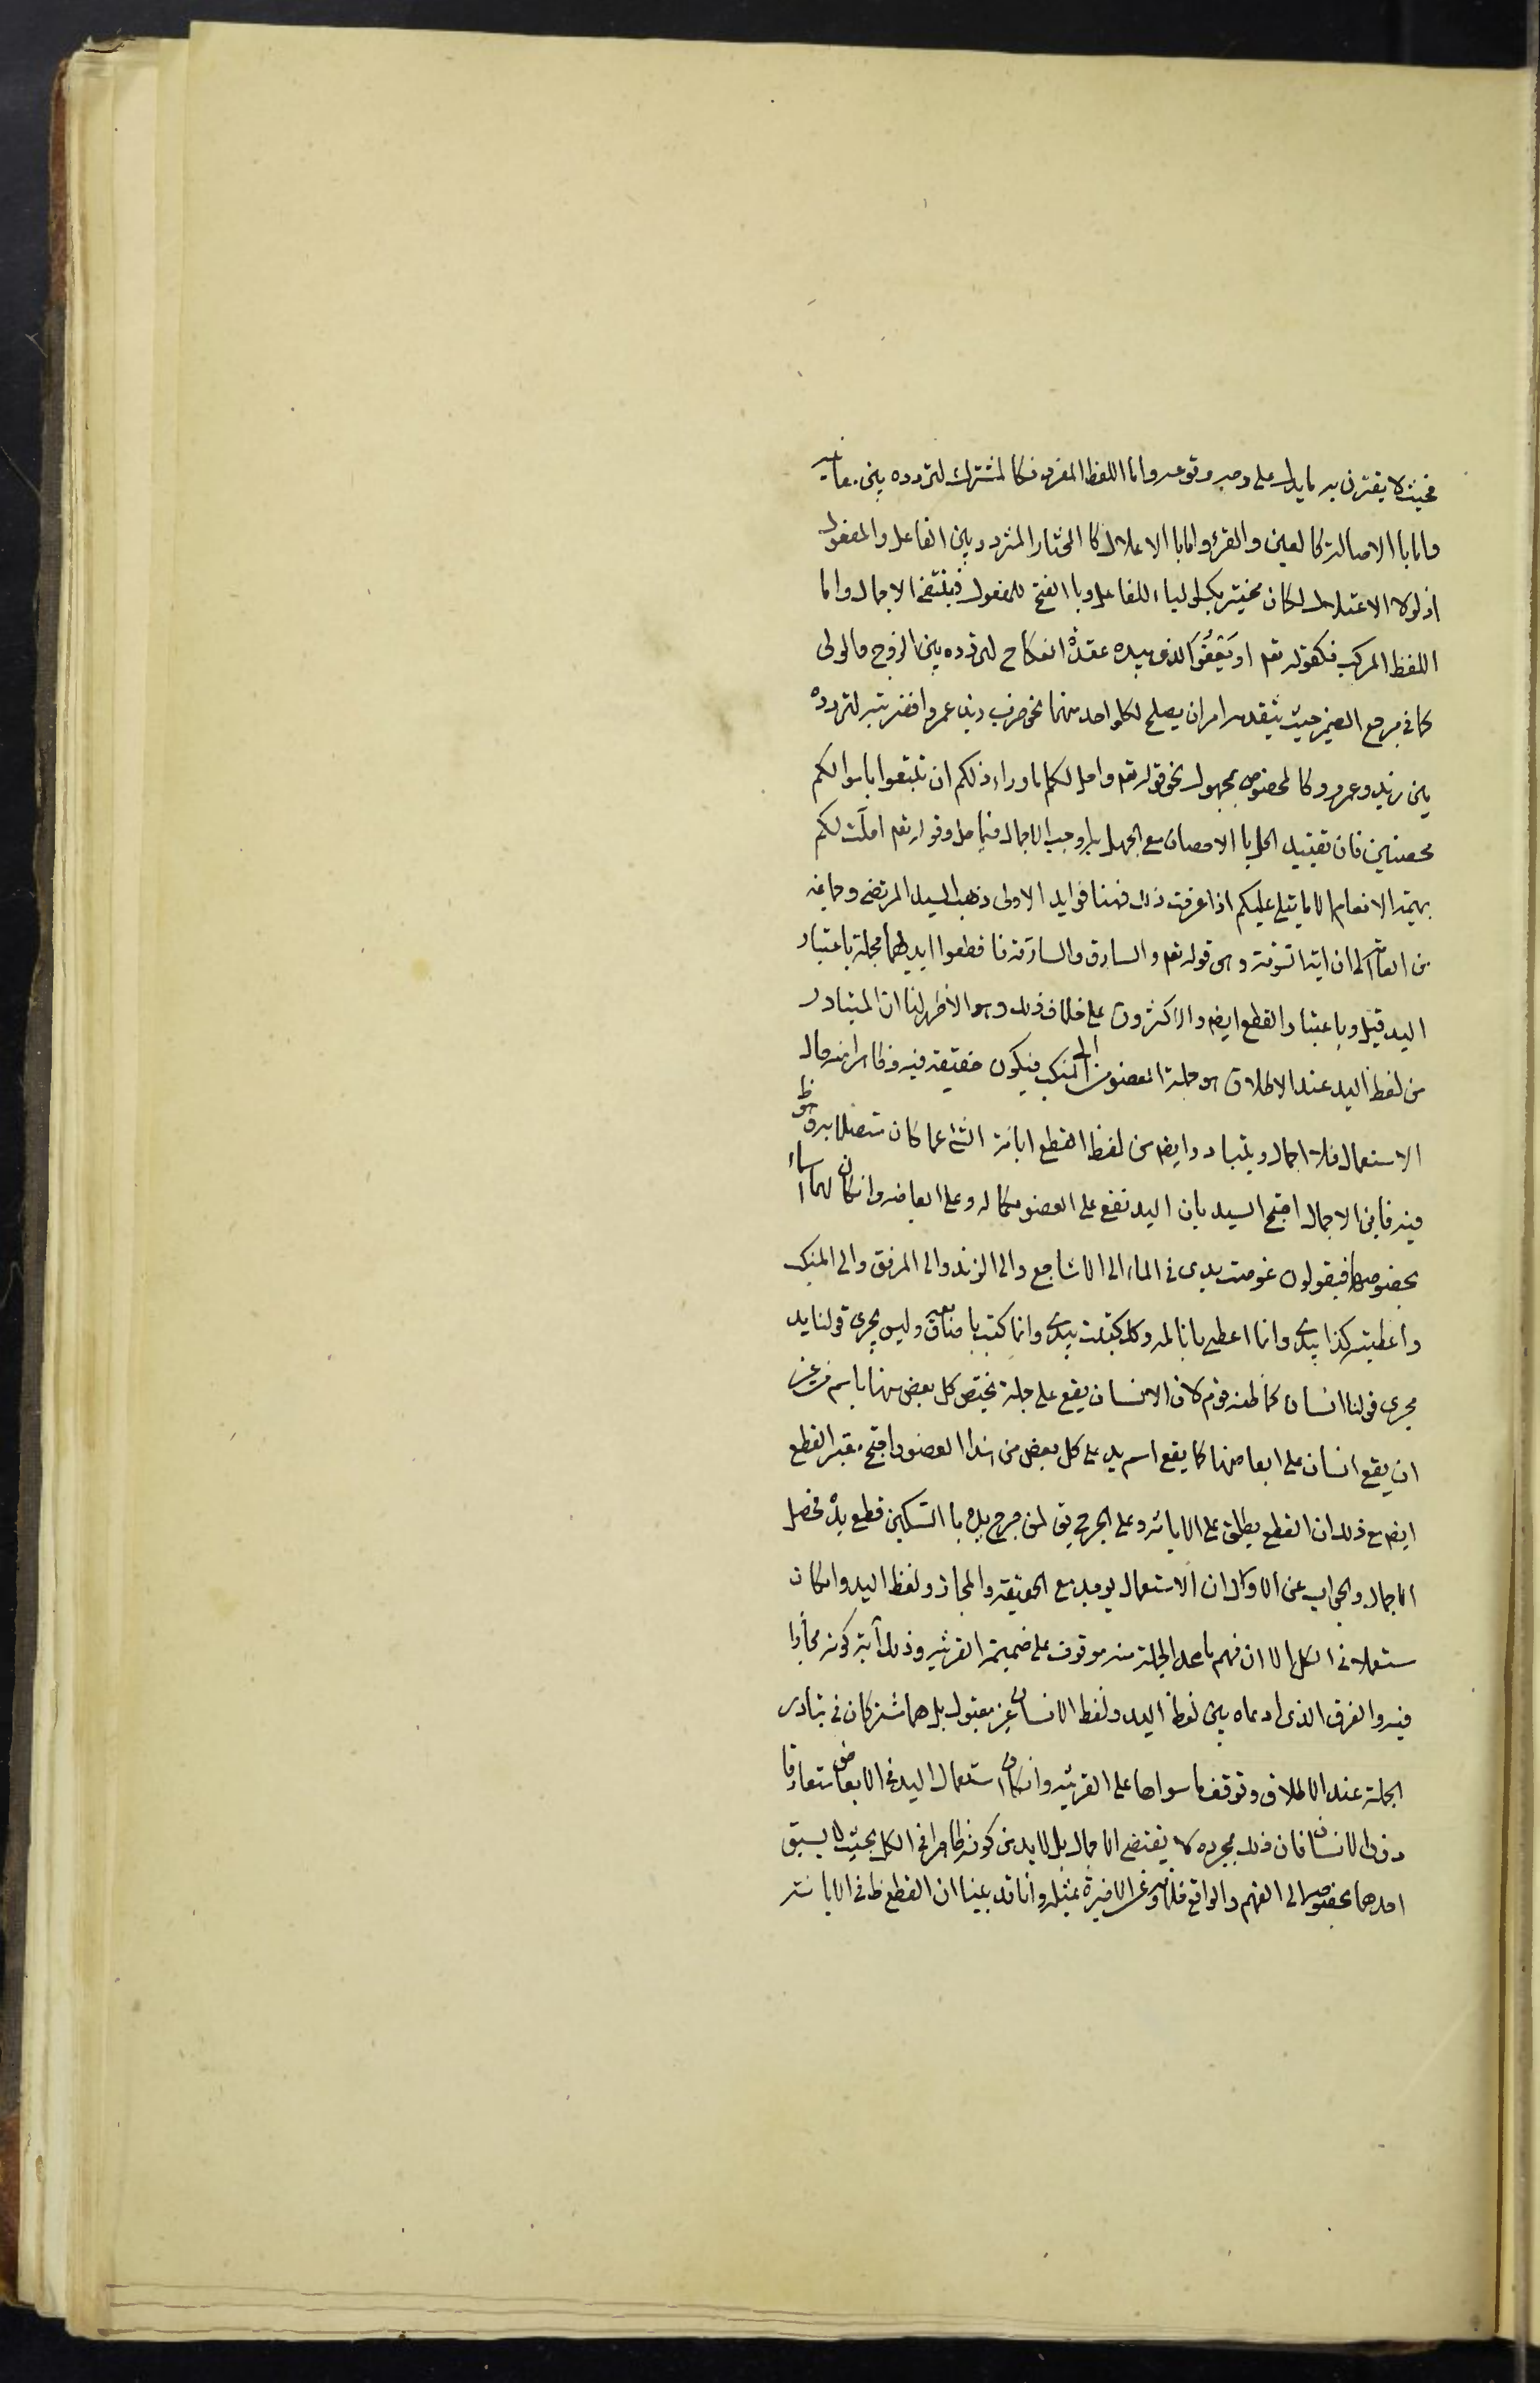 فحيث لا يقترن به ما يدل على وجه وقوعه واما اللفظ المفرد فكالمشترك لتردده بين معانيه
واما باالاصالة كالعين والقرء واما باالاعلال كا المختار المتردد بين الفاعل والمفعول
اذ لولا الاعتلال لكان مختير بكسر الياء للفاعل وبا الفتح للمفعول فينتفى الاجمال واما
اللفظ المركب فكقوله تعم او يَعْفُوَ الذى بيده عقدة النكاح لتردده بين الزوج والولى
كما فى مرجع الضمير حيث يتقدم امران يصلح لكل واحد منهما نحو ضرب زيد عمروا فضربته لتردده
بين زيد وعمرو وكالمخصوص بمجهول نحو قوله تعم واحل لكم ما وراء ذلكم ان تبتغوا باموالكم
محصنين فان تقييد الحل با الاحصان مع الجهل به اوجب الاجمال فيما حل وقوله تعم احلّت لكم
بهيمة الانعام الا ما يتلى عليكم اذا عرفت ذلك فهنا فوايد الاولى ذهب السيد المرتضى وجماعة
من العامّة الى ان اية السرقة وهى قوله تعم والسارق والسارقة فاقطعوا ايديهما مجملة باعتبار
اليد قيل وباعتبار القطع ايضا والاكثرون على خلاف ذلك وهو الاظهر لنا ان المتبادر
من لفظ اليد عند الاطلاق هو جملة العضو من المنكب فيكون حقيقة فيه وظاهرا منه حال
الاستعمال فلا اجمال ويتبادر ايضا من لفظ القطع ابانة الشئ عما كان متصلا به فهو ظ
فيه فاين الاجمال احتج السيد بان اليد تقع على العضو بكماله وعلى ابعاضه وان كان لها اسماء
بخصوصها فيقولون غوصت يدى فى الماء الى الاشاجع والى الزند والى المرفق والى المنكب
واعطيته كذا بيدى وانما اعطى بانامله وكذا كتبت بيدى وانما كتب باصابعه وليس يجرى قولنا يد
مجرى قولنا انسان كما ظنه قوم لان الانسان يقع على جملة يختص كل بعض منها باسم من غير
ان يقع انسان على ابعاضها كما يقع اسم يد على كل بعض من هذا العضو واحتج معتبر القطع
ايضا مع ذلك ان القطع يطلق على الابانة وعلى الجرح يق لمن جرح يده باالسكين قطع يده فحصل
الاجمال والجواب عن الاول ان الاستعمال يوجد مع الحقيقة والمجاز ولفظ اليد وان كان
مستعملا فى الكل الا ان فهم ما عدا الجملة منه موقوف على ضميمة القرينة وذلك آية كونه مجازا
فيه والفرق الذى ادعاه بين لفظ اليد ولفظ الانسان غير مقبول بل هما مشتركان فى تبادر
الجملة عند الاطلاق وتوقف ما سواها على القرينة وان كان استعمال اليد فى الابعاض متعارفا
دون الانسان فان ذلك بمجرده لا يقتضى الاجمال بل لا بد من كونه ظاهرا فى الكل بحيث لا يسبق
احدهما بخصوصه الى الفهم والواقع خلافه وعن الاخيرة بمثله وانا قد بينا ان القطع ظ فى الابانة